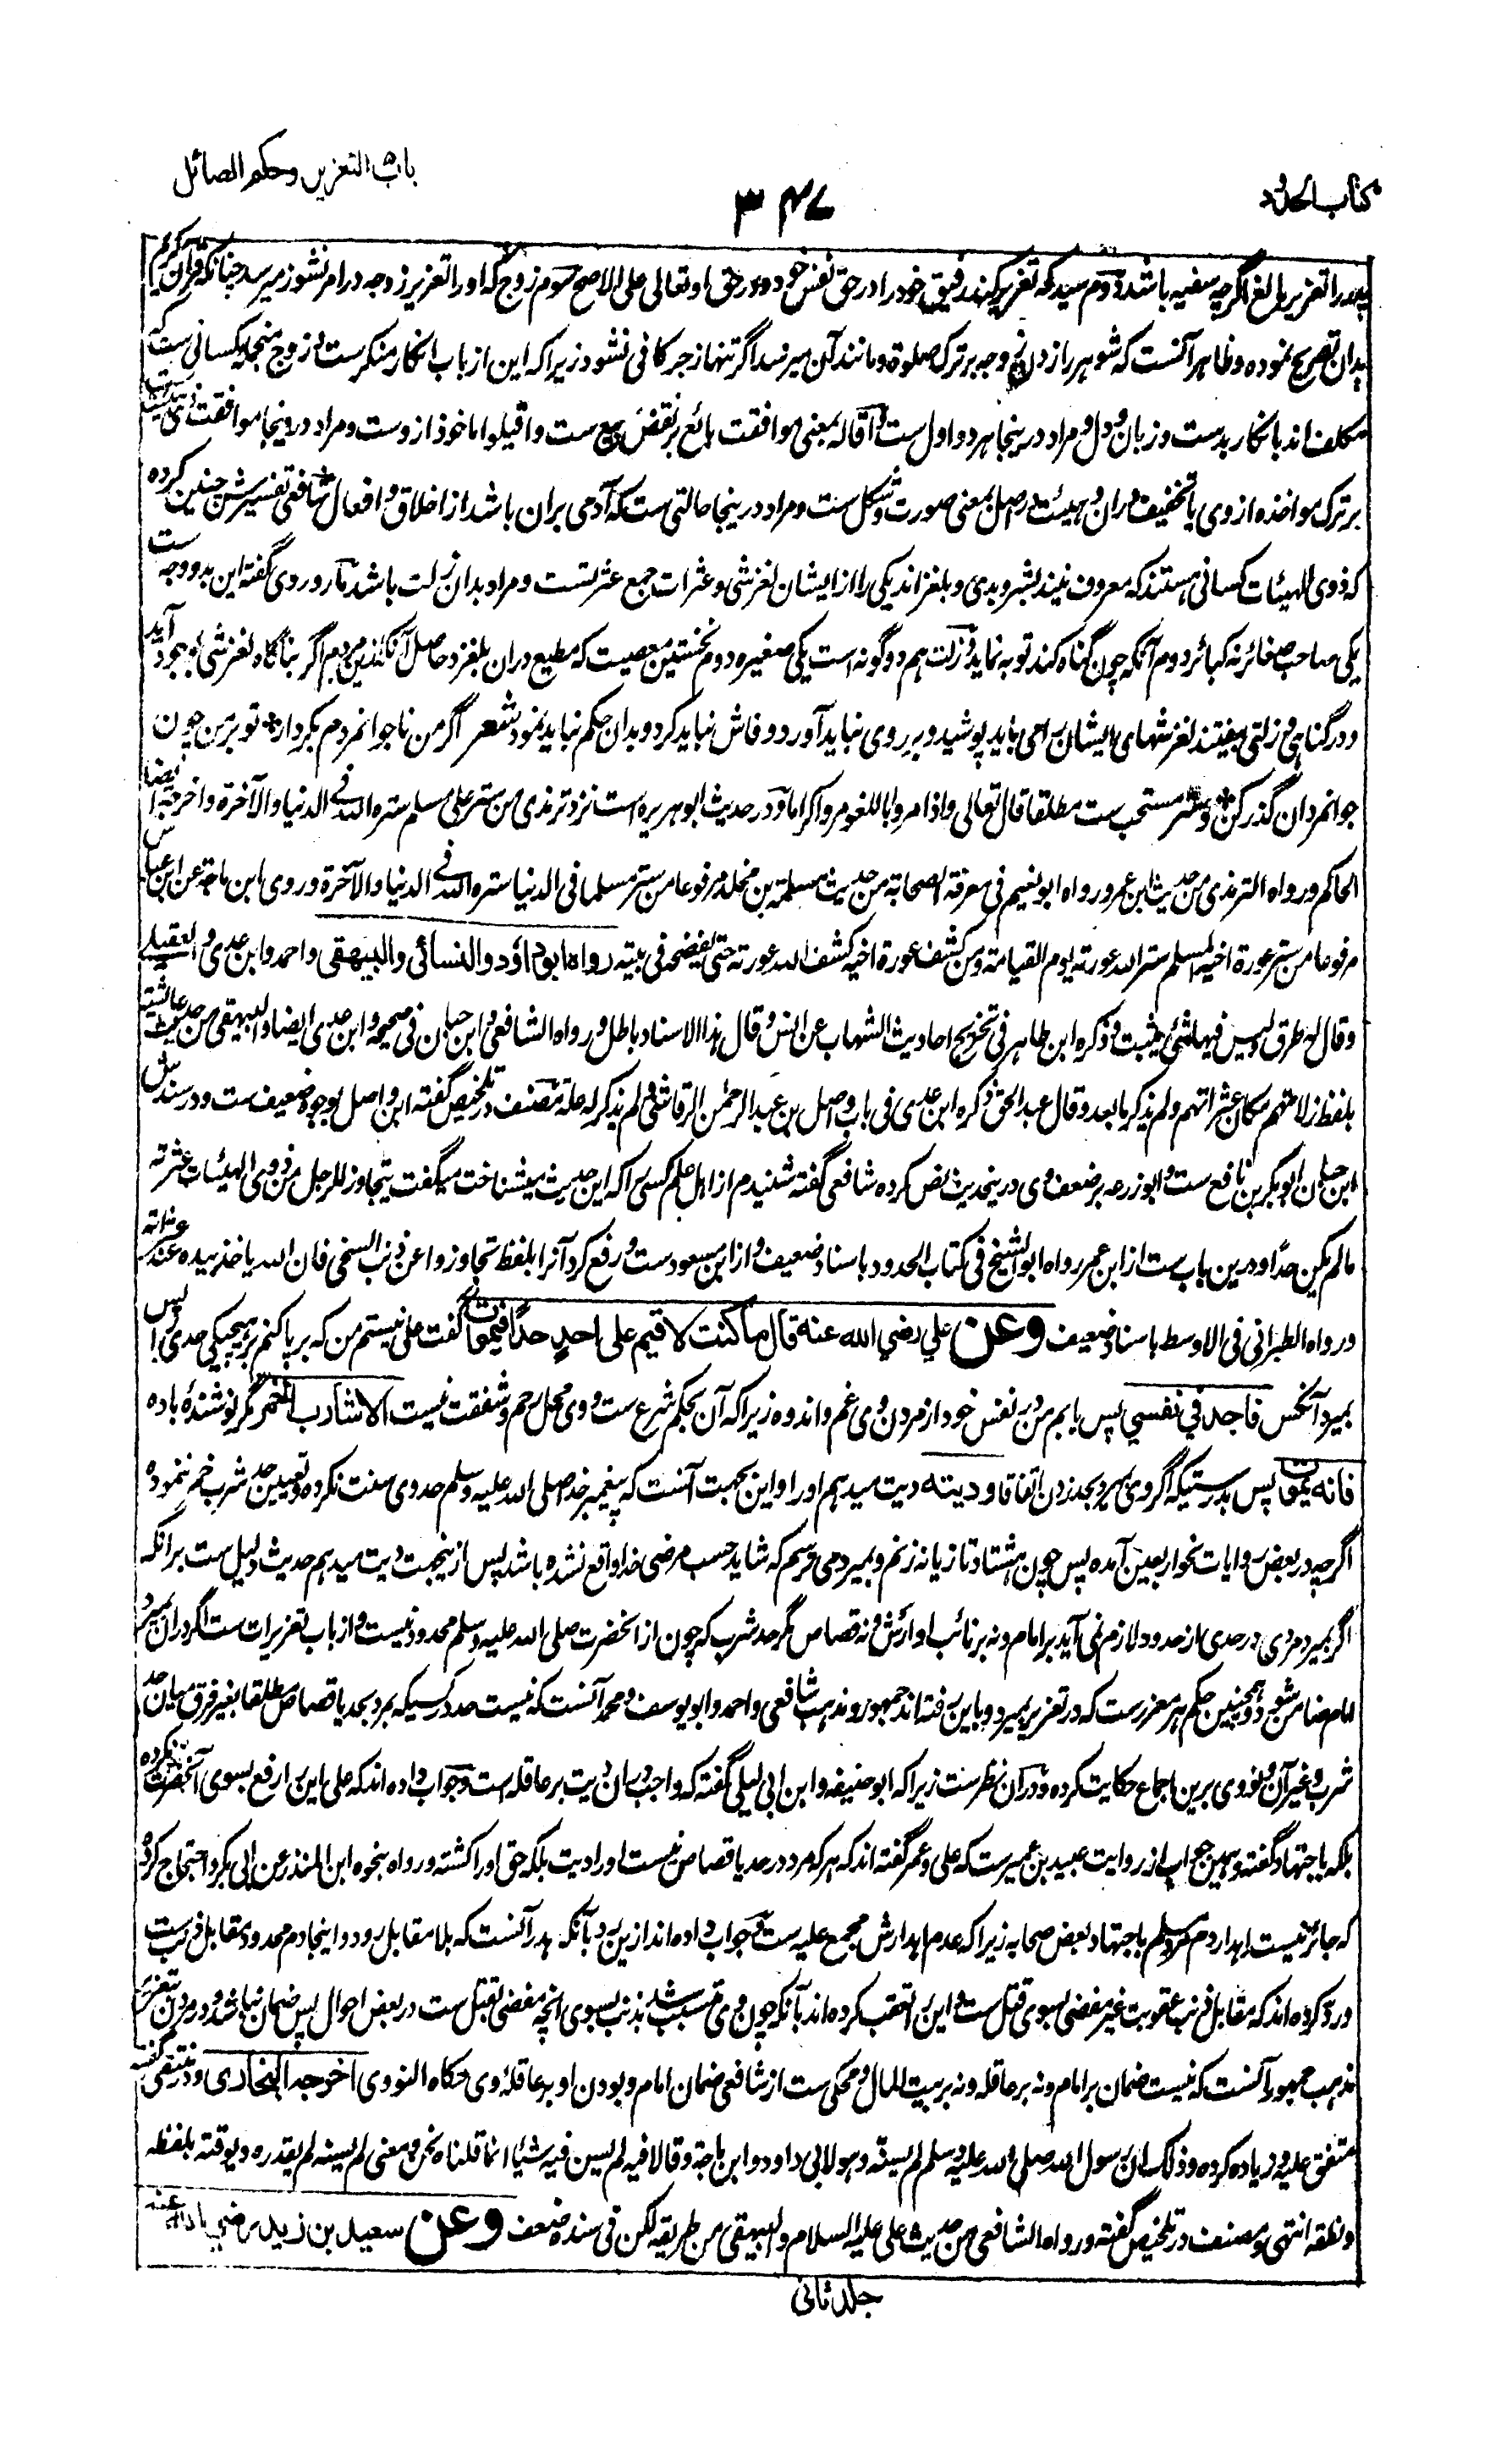 کتاب الحدود
۳۴۷
باب التعزیر وحکم الصائل
پدر را تعزیر بالغ اگرچه سفیه باشد دوم سید که تعزیر کند رقیق خود را در حق نفس خود و در حق او تعالی علی الاصح سوم زوج که او را تعزیر زوجه در امر نشوز میرسد چنانکه قرآن کریم
بدان تصریح نموده و ظاهر آنست که شوهر را زدن زوجه بر ترک صلوة و مانند آن میرسد اگر تنها زجر کافی نشود زیرا که این از باب انکار منکرست و زوج منجمله کسانی ست که
مکلف اند بانکار بدست و زبان و دل و مراد درینجا هر دو اول ست و اقاله بمعنی موافقت بائع بر نقض بیع ست و اقیلوا ماخوذ ازوست و مراد درینجا موافقت ذی هیئت ست
بر ترک مواخذه از وی یا تخفیف دران و هیئت در اصل بمعنی صورت و شکل ست و مراد درینجا حالتی ست که آدمی بران باشد از اخلاق و افعال شافعی تفسیرش چنین کرده
که ذوی الهیئات کسانی هستند که معروف نیند بشر و بدی و بلغزاند یکی را از ایشان لغزشی و عثرات جمع عثرتست و مراد بدان زلت باشد ماوردی گفته این بدو وجه ست
یکی صاحب صغائر نه کبائر دوم آنکه چون گناه کند توبه نماید و زلت هم دو گونه است یکی صغیره دوم نخستین معصیت که مطیع دران بلغزد حاصل آنکه ازین مردم اگر بناگاه لغزشی بوجود آید
و در گناهی و زلتی بیفتند لغزشهای ایشان را می باید پوشید و بر روی نباید آورد و فاش نباید کرد و بدان حکم نباید نمود شعر اگر من ناجوانمردم بکردار * تو بر من چون
جوانمردان گذر کن * و ستر مستحب ست مطلقا قال تعالی واذا مروا باللغو مروا کراما و در حدیث ابوهریره است نزد ترمذی من ستر علی مسلم ستره الله فی الدنیا والآخرة واخرجه ایضا
الحاکم ورواه الترمذی من حدیث ابن عمر ورواه ابونعیم فی معرفة الصحابة من حدیث مسلمة بن مخلد مرفوعا من ستر مسلما فی الدنیا ستره الله فی الدنیا والآخرة وروی ابن ماجة عن ابن عباس
مرفوعا من ستر عورة اخیه المسلم ستر الله عورته یوم القیامة ومن کشف عورة اخیه کشف الله عورته حتی یفضحه فی بیته رواه ابوداؤد والنسائی والبیهقی واحمد وابن عدی والعقیلی
وقال له طرق لیس فیها شئ یثبت وذکره ابن طاهر فی تخریج احادیث الشهاب عن انس وقال هذا الاسناد باطل ورواه الشافعی وابن حبان فی صحیحه وابن عدی ایضا والبیهقی من حدیث عائشة
بلفظ زلاتهم مکان عثراتهم ولم یذکر ما بعده وقال عبدالحق ذکره ابن عدی فی باب واصل بن عبدالرحمن الرقاشی ولم یذکر له علة مصنف در تلخیص گفته ابن واصل ابو حره ضعیف ست و در سندش
ابن حبان ابوبکر بن نافع ست و ابوزرعه بر ضعف وی درینحدیث نص کرده شافعی گفته شنیدم از اهل علم کسی را که این حدیث میشناخت میگفت یتجاوز للرجل من ذوی الهیئات عثرته
مالم یکن حدا ودرین باب ست از ابن عمر رواه ابوالشیخ فی کتاب الحدود باسناد ضعیف و از ابن مسعود ست و رفع کرد آنرا بلفظ تجاوزوا عن ذنب السخی فان الله یاخذ بیده عند عثراته
ورواه الطبرانی فی الاوسط باسناد ضعیف وعن علي رضي الله عنه قال ما کنت لاقیم علی احدٍ حدًا فیموت گفت علی نیستم من که برپا کنم بر هیچکی حدی را پس
بمیرد آنکس فاجد في نفسي پس یابم من در نفس خود از مردن وی غم و اندوه زیرا که آن بحکم شرع ست و وی محل رحم و شفقت نیست الا شارب الخمر مگر نوشندهٔ باده
فانه لو مات پس بدرستیکه اگر وی بمیرد بحد زدن اتفاقا ودیته دیت میدهم او را و این بجهت آنست که پیغمبر خدا صلی الله علیه وسلم حدوی سنت نکرده و تعیین حد شرب خمر ننموده
اگرچه در بعض روایات نحو اربعین آمده پس چون هشتاد تازیانه زنم و بمیرد می ترسم که شاید حسب مرضی خدا واقع نشده باشد پس ازینجهت دیت میدهم حدیث دلیل ست برانکه
اگر بمیرد مردی در حدی از حدود لازم نمی آید بر امام و نه بر نائب او ارش و نه قصاص مگر حد شرب که چون از آنحضرت صلی الله علیه وسلم محدود نیست و از باب تعزیرات ست اگر دران بمیرد
امام ضامن شود و همچنین حکم هر معزر ست که در تعزیر بمیرد و باین رفته اند جمهور و مذهب شافعی و احمد و ابویوسف و محمد آنست که نیست صدد کسیکه بمرد بحد یا قصاص مطلقا بغیر فرق میان حد
شرب و غیر آن و نووی برین اجماع حکایت کرده و دران نظر ست زیرا که ابوحنیفه و ابن ابی لیلی گفته که واجب دران دیت بر عاقله است و جواب داده اند که علی این را رفع بسوی آنحضرت نکرده
بلکه باجتهاد گفته و همین جواب از روایت عبید بن عمیر ست که علی و عمر گفته اند که هر که مرد در حد یا قصاص نیست او را دیت بلکه حق او را کشته ورواه بنحوه ابن المنذر عن ابی بکر و احتجاج کرده
که جائز نیست اهدار دم مسلم باجتهاد بعض صحابه زیرا که عدم اهدارش مجمع علیه ست و جواب داده اند ازین بآنکه هدر آنست که بلا مقابل رود و اینجا دم محدود مقابل ذنب ست
و رد کرده اند که مقابل ذنب عقوبت غیر مفضی بسوی قتل ست و این را تعقب کرده اند بآنکه چون وی متسبب شد بذنب بسوی آنچه مفضی بقتل ست در بعض احوال پس ضمان نباشد و در مردن بتعزیر
مذهب جمهور آنست که نیست ضمان بر امام و نه بر عاقله و نه بر بیت المال و محکی ست از شافعی ضمان امام و بودن او بر عاقلهٔ وی حکاه النووی اخرجه البخاری ودر منتقی گفته
متفق علیه و زیاده کرده وذلک ان رسول الله صلی الله علیه وسلم لم یسنه وهو لابی داود وابن ماجة وقالا فیه لم یسن فیه شیئا انما قلناه نحن ومعنی لم یسنه لم یقدره ویوقته بلفظه
ونطقه انتهی ومصنف در تلخیص گفته ورواه الشافعی من حدیث علی علیه السلام والبیهقی من طریقه لکن فی سنده ضعف وعن سعید بن زید رضي الله عنه
جلد ثانی